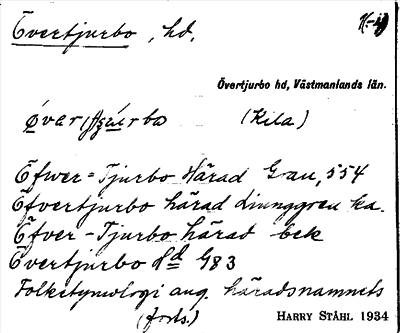 Övertjurbo, hd.
Övertjurbo hd, Västmanlands län.
(Kila)
Öfwer=Tjurbo Härad Grau, 554
Öfvertjurbo härad Ljunggren ka.
Öfver-Tjurbo härad bek
Övertjurbo hd G83
Folketymologi ang. häradsnamnets
(forts.)
HARRY STÅHL 1934